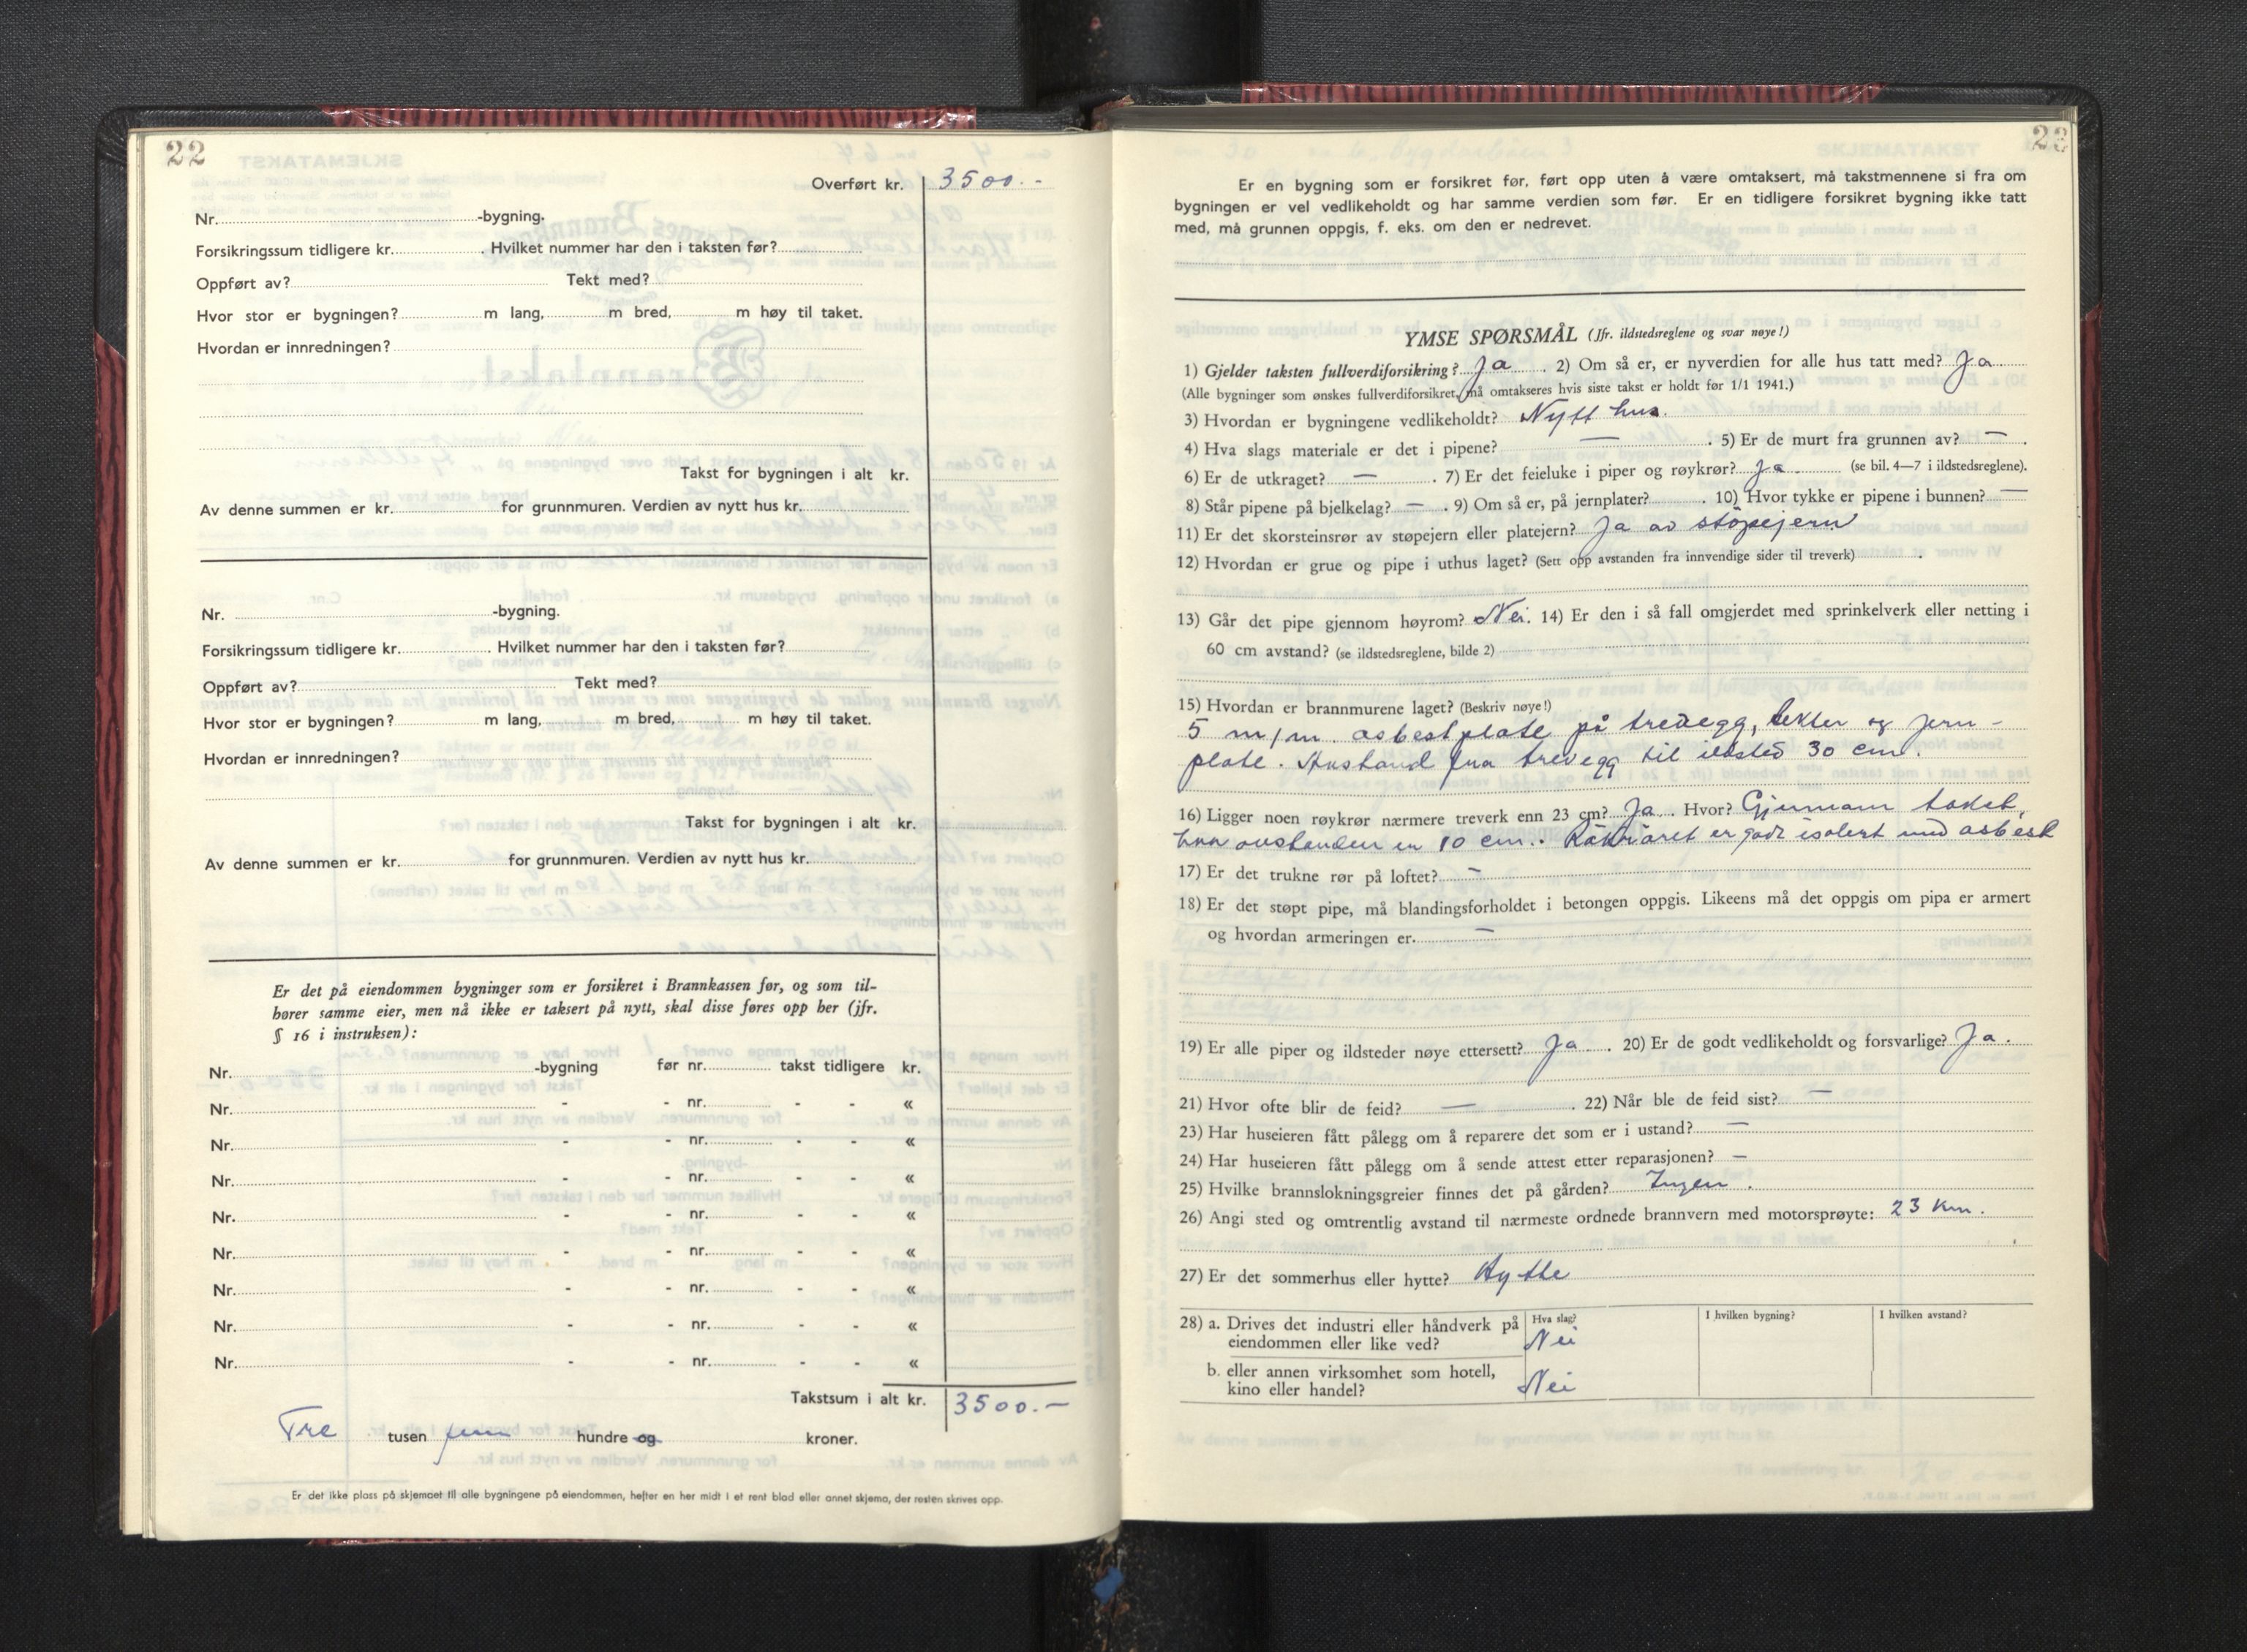 22
Overført kr. 3500.-
Nr. -bygning.
Forsikringssum tidligere kr. . Hvilket nummer har den i taksten før?
Oppført av? Tekt med?
Hvor stor er bygningen? m lang, m bred, m høy til taket.
Hvordan er innredningen?
Takst for bygningen i alt kr.
Av denne summen er kr. for grunnmuren. Verdien av nytt hus kr.
Nr. -bygning.
Forsikringssum tidligere kr. . Hvilket nummer har den i taksten før?
Oppført av? Tekt med?
Hvor stor er bygningen? m lang, m bred, m høy til taket.
Hvordan er innredningen?
Takst for bygningen i alt kr.
Av denne summen er kr. for grunnmuren. Verdien av nytt hus kr.
Er det på eiendommen bygninger som er forsikret i Brannkassen før, og som til-
hører samme eier, men nå ikke er taksert på nytt, skal disse føres opp her (jfr.
§ 16 i instruksen):
Nr. -bygning før nr. takst tidligere kr.
Nr. - - nr. - - «
Nr. - - nr. - - «
Nr. - - nr. - - «
Nr. - - nr. - - «
Nr. - - nr. - - «
Nr. - - nr. - - «
Nr. - - nr. - - «
Nr. - - nr. - - «
Takstsum i alt kr. 3500.-
Tre tusen fem hundre og kroner.
Er det ikke plass på skjemaet til alle bygningene på eiendommen, hefter en her midt i et rent blad eller annet skjema, der resten skrives opp.
23
Er en bygning som er forsikret før, ført opp uten å være omtaksert, må takstmennene si fra om
bygningen er vel vedlikeholdt og har samme verdien som før. Er en tidligere forsikret bygning ikke tatt
med, må grunnen oppgis, f. eks. om den er nedrevet.
YMSE SPØRSMÅL (Jfr. ildstedsreglene og svar nøye!)
1) Gjelder taksten fullverdiforsikring? Ja . 2) Om så er, er nyverdien for alle hus tatt med? Ja
(Alle bygninger som ønskes fullverdiforsikret, må omtakseres hvis siste takst er holdt før 1/1 1941.)
3) Hvordan er bygningene vedlikeholdt? Nytt hus.
4) Hva slags materiale er det i pipene? — . 5) Er de murt fra grunnen av? — .
6) Er de utkraget? — . 7) Er det feieluke i piper og røykrør? Ja. (se bil. 4—7 i ildstedsreglene).
8) Står pipene på bjelkelag? — . 9) Om så er, på jernplater? . 10) Hvor tykke er pipene i bunnen? —
11) Er det skorsteinsrør av støpejern eller platejern? Ja av støpejern
12) Hvordan er grue og pipe i uthus laget? (Sett opp avstanden fra innvendige sider til treverk) .
13) Går det pipe gjennom høyrom? Nei. 14) Er den i så fall omgjerdet med sprinkelverk eller netting i
60 cm avstand? (se ildstedsreglene, bilde 2)
15) Hvordan er brannmurene laget? (Beskriv nøye!)
5 m/m. asbestplate på trevegg, lekter og jern-
plate. Avstand fra trevegg til ildsted 30 cm.
16) Ligger noen røykrør nærmere treverk enn 23 cm? Ja. Hvor? Gjennom taket,
hvor avstanden er 10 cm. Røkrøret er godt isolert med asbest
17) Er det trukne rør på loftet? -
18) Er det støpt pipe, må blandingsforholdet i betongen oppgis. Likeens må det oppgis om pipa er armert
og hvordan armeringen er. —
19) Er alle piper og ildsteder nøye ettersett? Ja . 20) Er de godt vedlikeholdt og forsvarlige? Ja.
21) Hvor ofte blir de feid? — . 22) Når ble de feid sist? —
23) Har huseieren fått pålegg om å reparere det som er i ustand? —
24) Har huseieren fått pålegg om å sende attest etter reparasjonen? —
25) Hvilke brannslokningsgreier finnes det på gården? Ingen.
26) Angi sted og omtrentlig avstand til nærmeste ordnede brannvern med motorsprøyte: 23 km.
27) Er det sommerhus eller hytte? Hytte
28) a. Drives det industri eller håndverk på Hva slag? I hvilken bygning? I hvilken avstand?
eiendommen eller like ved? Nei
b. eller annen virksomhet som hotell,
kino eller handel? Nei